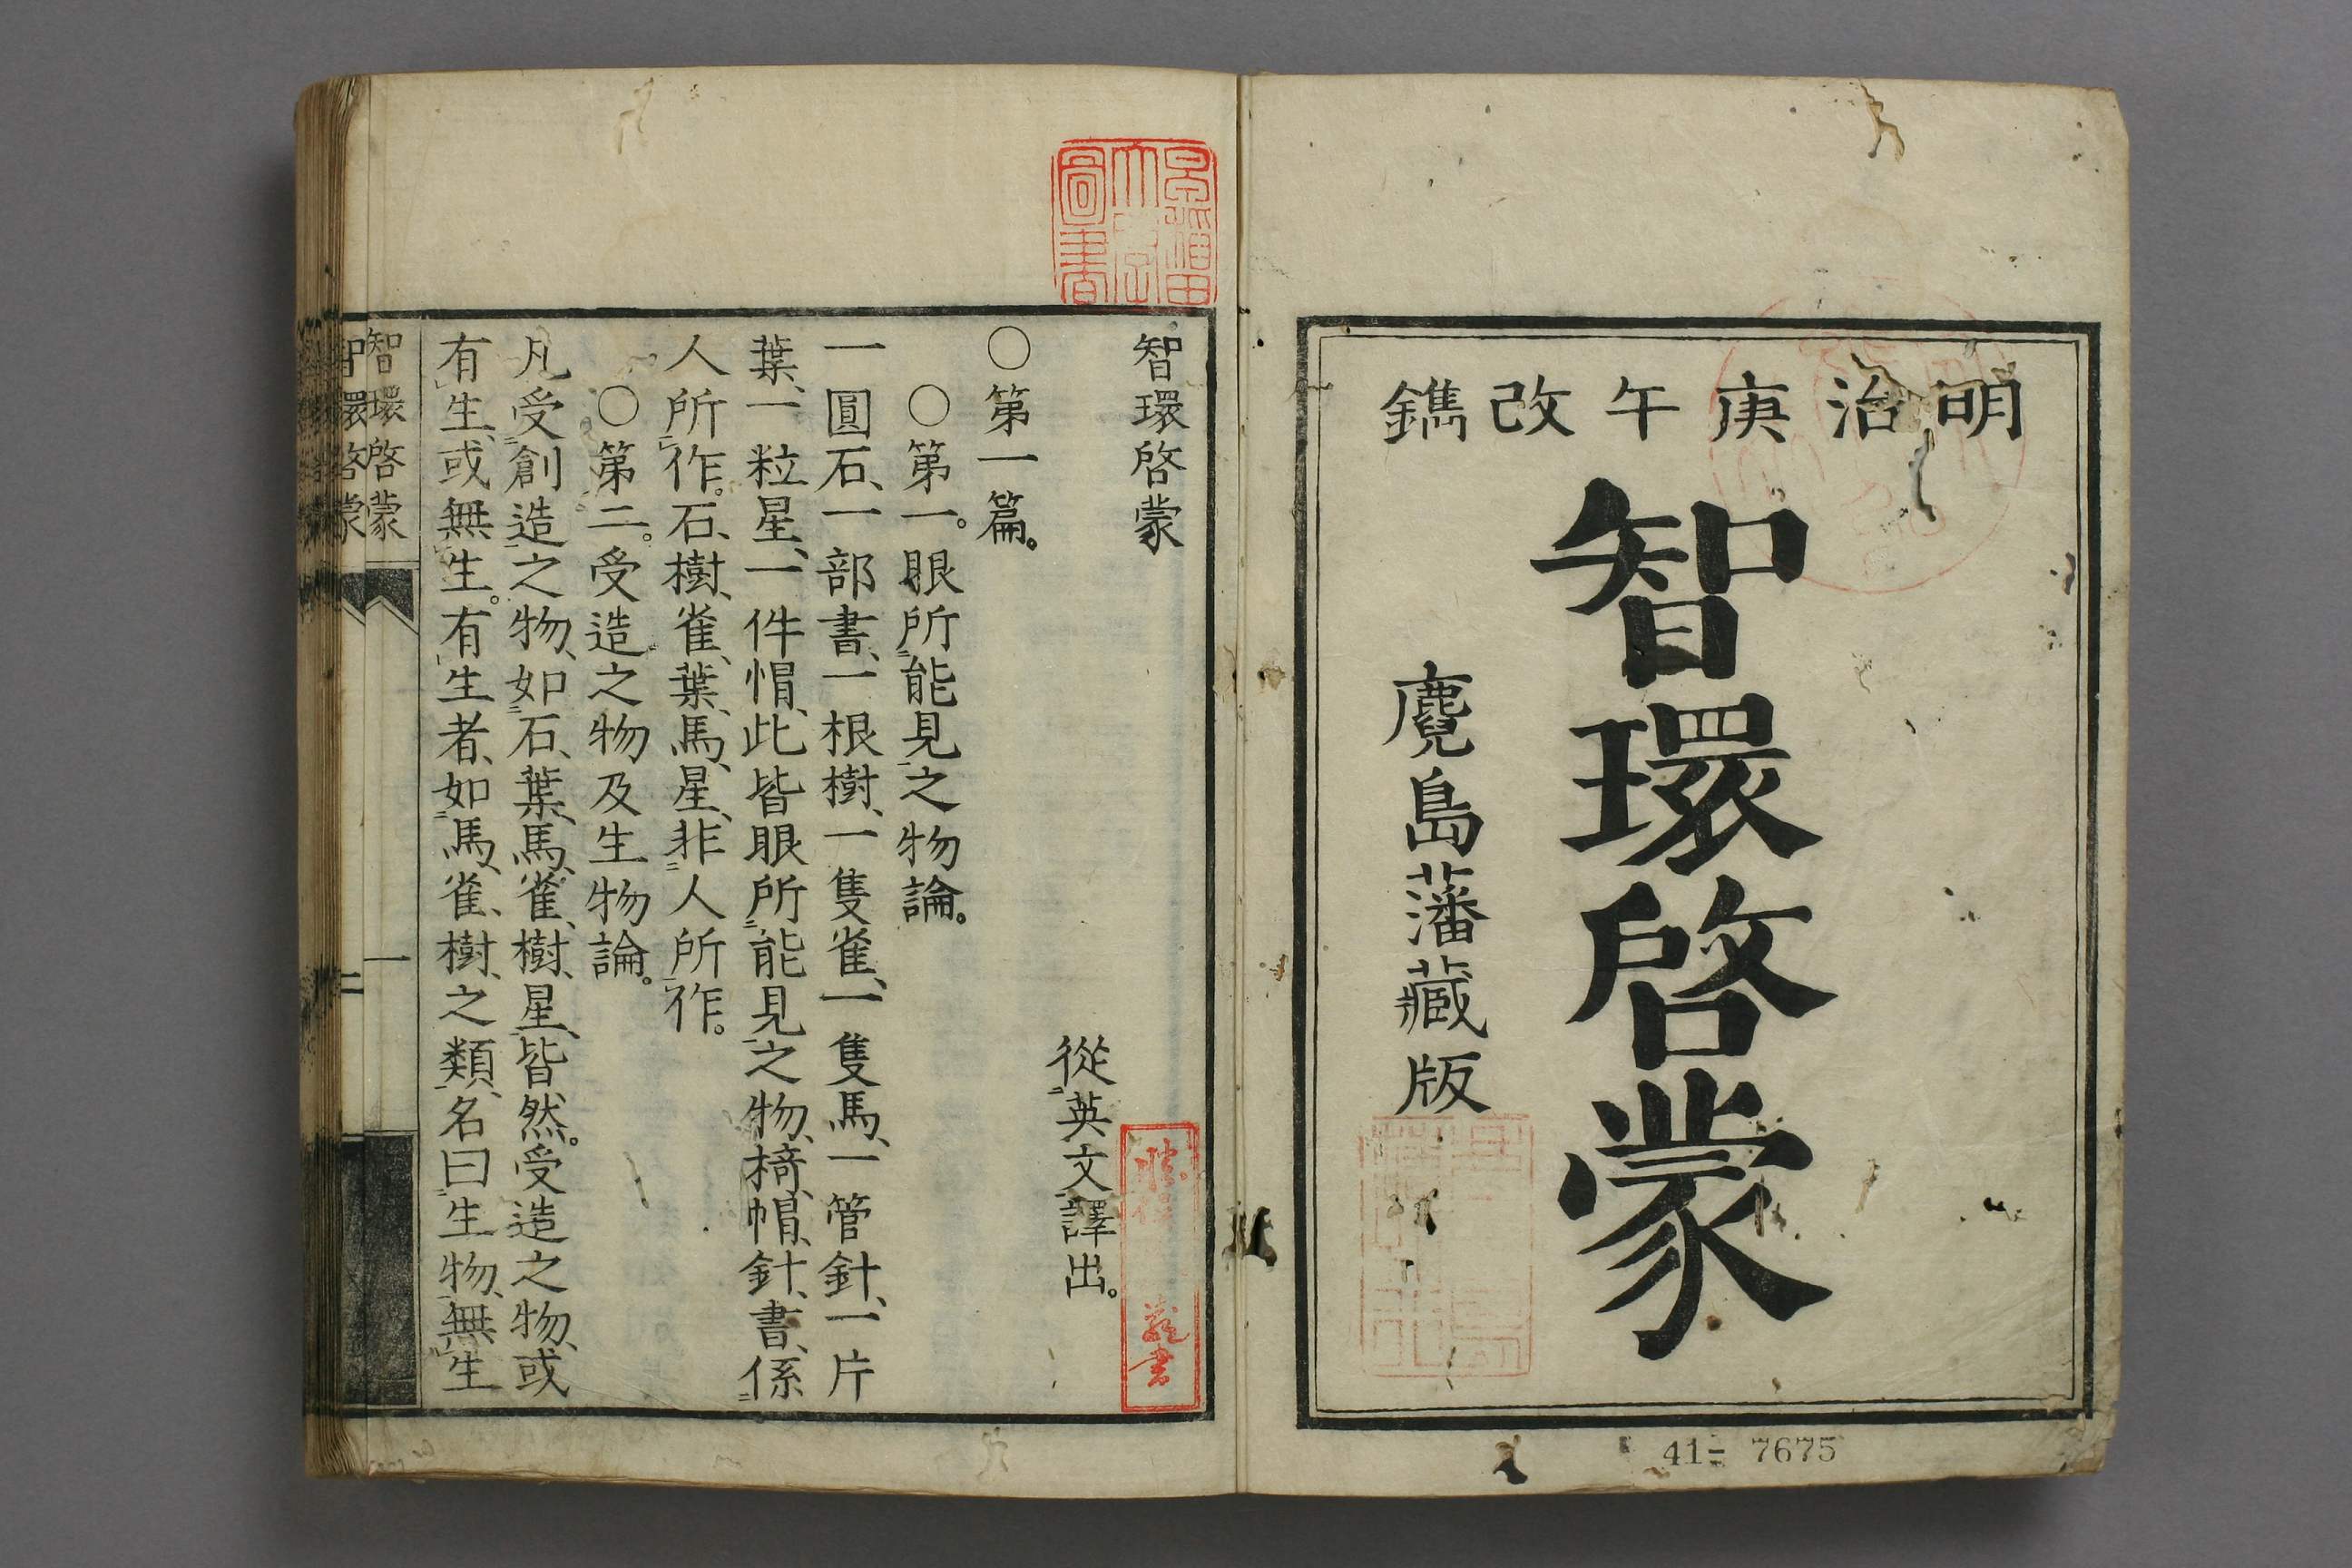 明治庚午改鐫
智環啓蒙
麑島藩藏版
41- 7675
早稲田
大学
圖書
智環啓蒙
從英文譯出。
○第一篇。
○第一。眼所能見之物論。
一圓石、一部書、一根樹、一隻雀、一隻馬、一管針、一片
葉、一粒星、一件帽、此皆眼所能見之物、椅、帽、針、書、係
人所作。石、樹、雀、葉、馬、星、非人所作。
○第二。受造之物及生物論。
凡受創造之物、如石、葉、馬、雀、樹、星、皆然。受造之物、或
有生、或無生。有生者、如馬、雀、樹、之類、名曰生物、無生
智環啓蒙
一
智環啓蒙
二